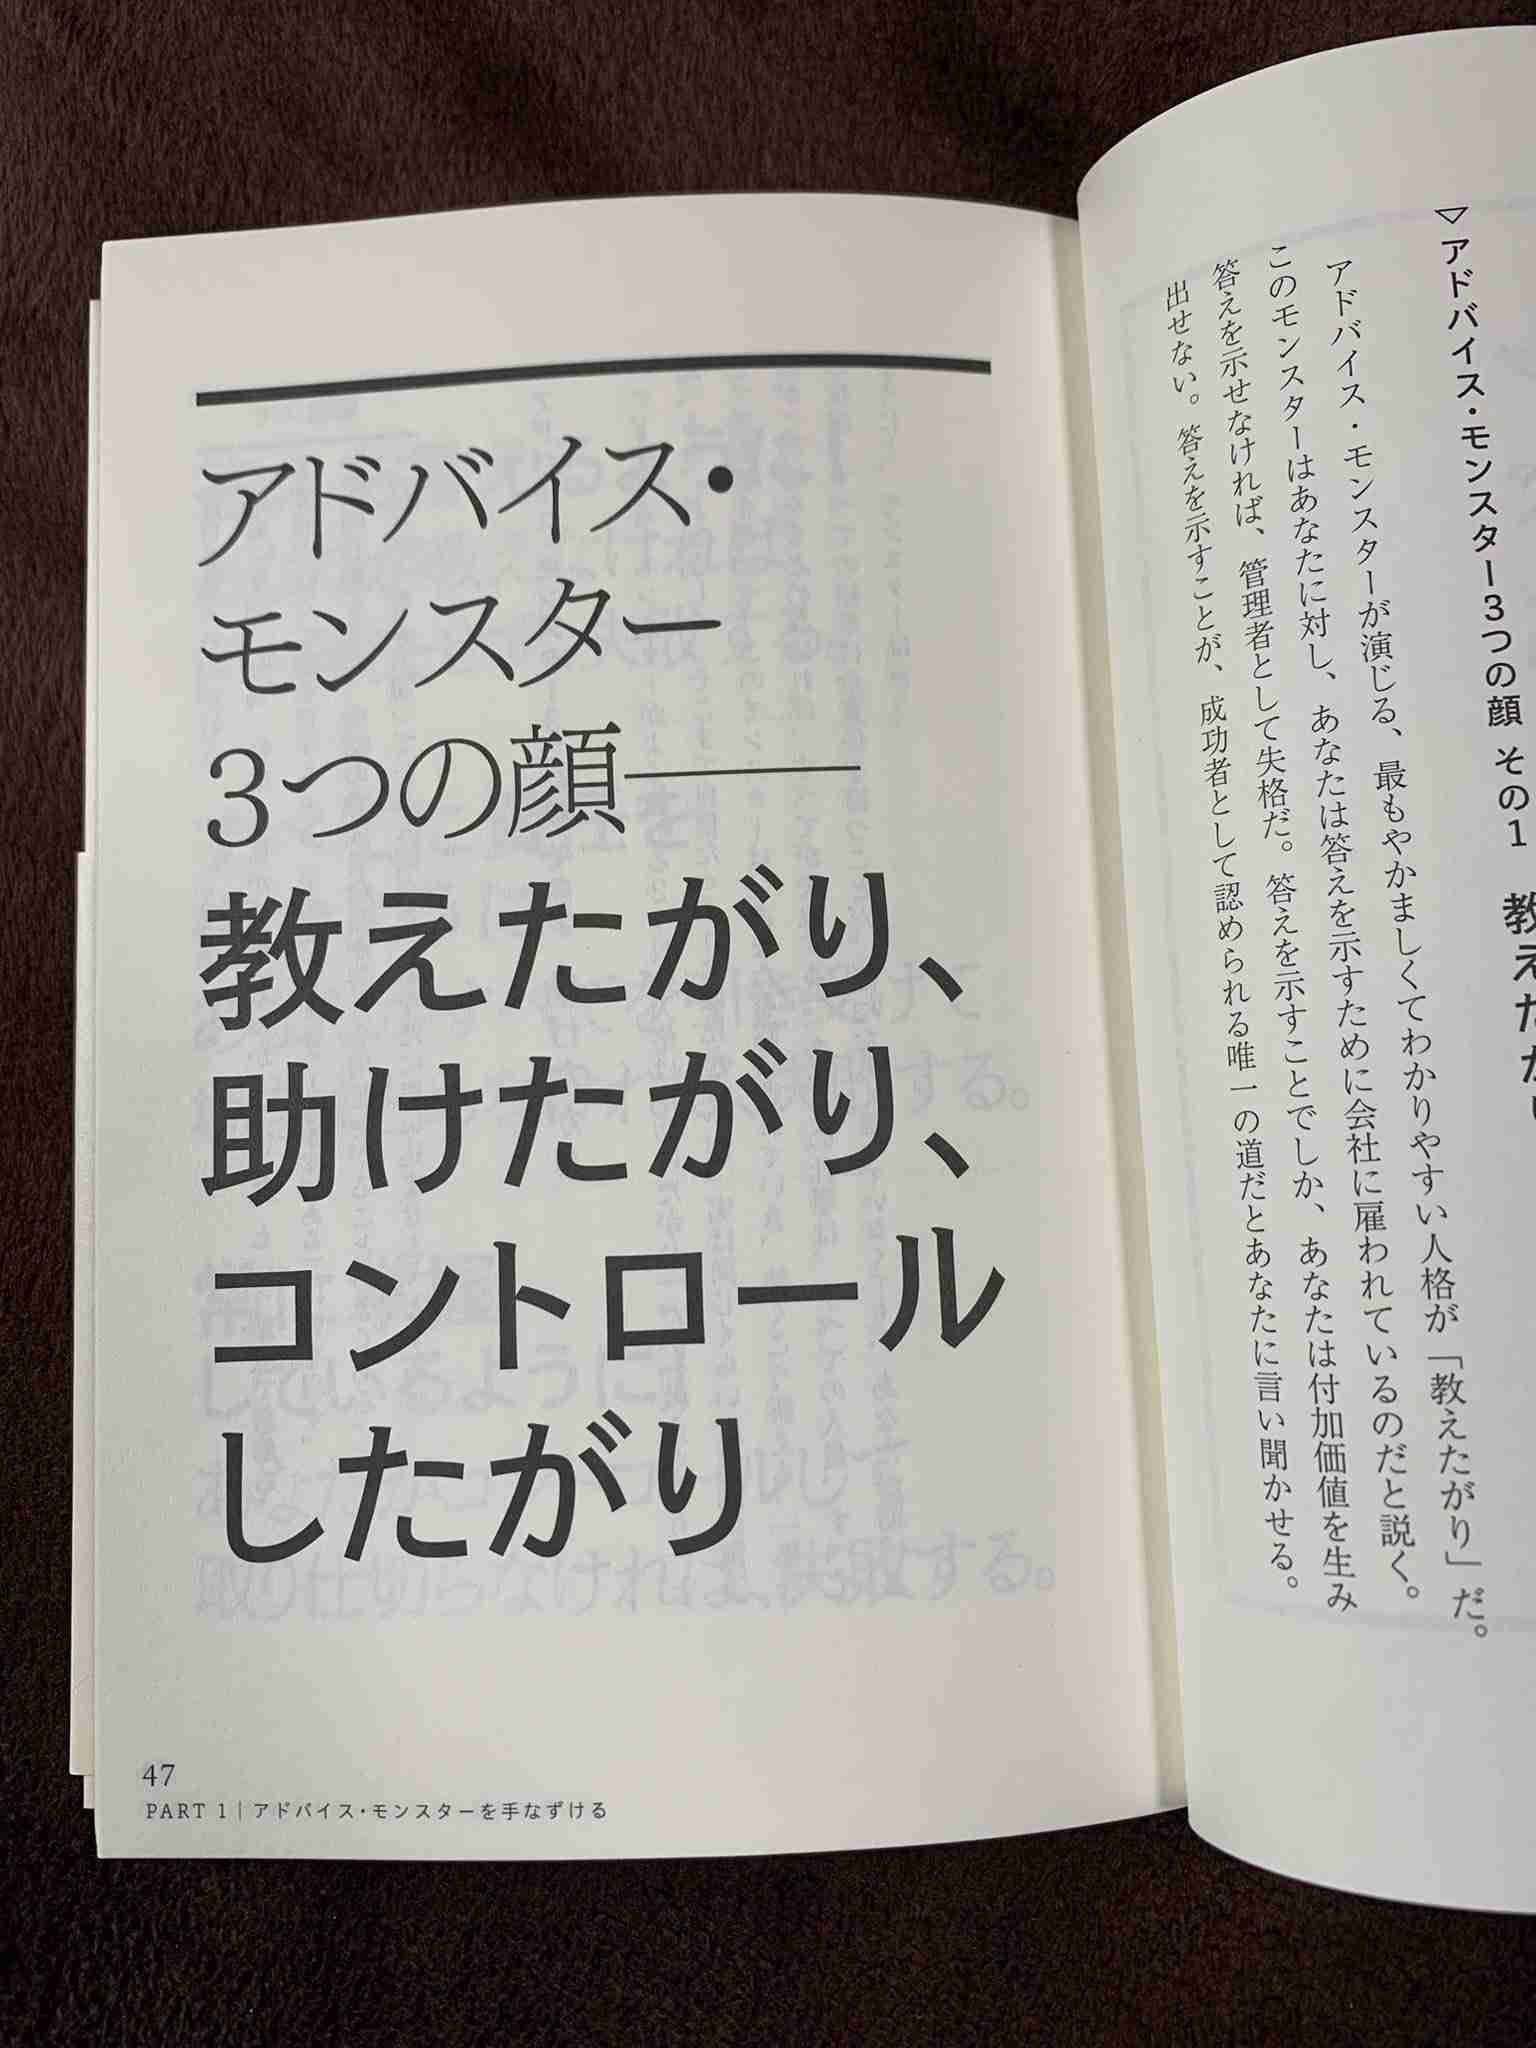 ▽アドバイス・モンスター3つの顔 その1 教えたがり
アドバイス・モンスターが演じる、最もやかましくてわかりやすい人格が「教えたがり」だ。
このモンスターはあなたに対し、あなたは答えを示すために会社に雇われているのだと説く。
答えを示せなければ、管理者として失格だ。答えを示すことでしか、あなたは付加価値を生み
出せない。答えを示すことが、成功者として認められる唯一の道だとあなたに言い聞かせる。
アドバイス・
モンスター
3つの顔――
教えたがり、
助けたがり、
コントロール
したがり
47
PART 1｜アドバイス・モンスターを手なずける